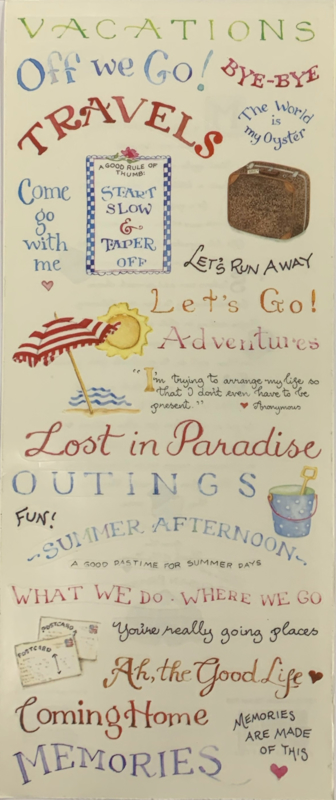 VACATIONS
Off we Go!
BYE-BYE
TRAVELS
The World
is
my Oyster
Come
go
with
me
A GOOD RULE OF
THUMB:
START
SLOW
&
TAPER
OFF
LET'S RUN AWAY
Let's Go!
Adventures
"I'm trying to arrange my life so
that I don't even have to be
present."
♥ Anonymous
Lost in Paradise
OUTINGS
FUN!
~SUMMER AFTERNOON~
A GOOD PASTIME FOR SUMMER DAYS
WHAT WE DO · WHERE WE GO
POSTCARD
POSTCARD
You're really going places
Ah, the Good Life
Coming Home
MEMORIES
ARE MADE
OF THIS
MEMORIES